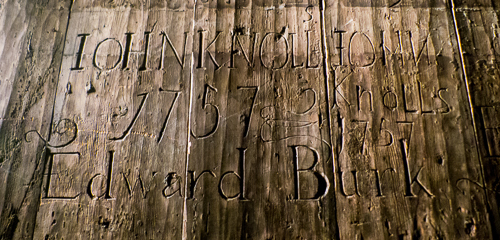 IOHN KNOLL IOHN
1757 Knolls
1757
Edward Burk